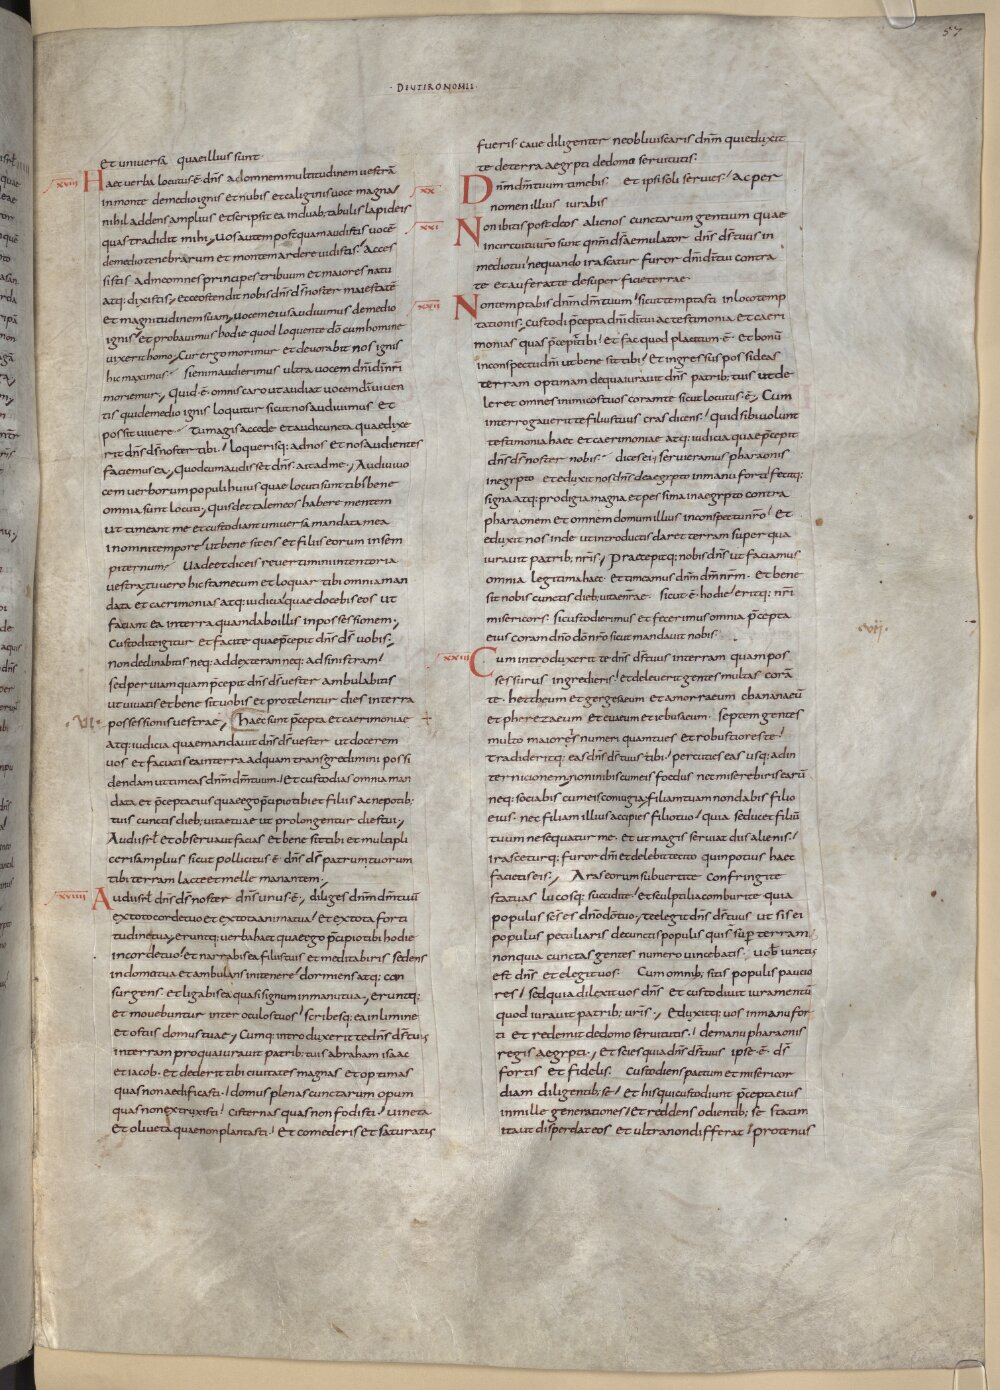 57
· DEUTERONOMII ·
et universa quae illius sunt·
XVIII Haec verba locutus · ē · dn̄s ad omnem multitudinem vestrā
in monte de medio ignis et nubis et caliginis voce magna
nihil addens amplius et scripsit ea in duab; tabulis lapideis
quas tradidit mihi, Vos autem postquam audistis vocē
de medio tenebrarum et montem ardere vidistis. Acces
sistis ad me omnes principes tribuum et maiores natu
atq; dixistis, ecce ostendit nobis dn̄s ds̄ noster maiestatē
et magnitudinem suam, vocem eius audivimus de medio
ignis et probavimus hodie quod loquente dō cum homine
vixerit homo, Cur ergo morimur et devorabit nos ignis
hic maximus· Si enim audierimus ultra vocem dn̄i dī nr̄i
moriemur, Quid · ē · omnis caro ut audiat vocem dī viven
tis qui de medio ignis loquitur sicut nos audivimus et
possit vivere· Tu magis accede et audi cuncta quae dixe
rit dn̄s ds̄ noster tibi. loquerisq; ad nos et nos audientes
faciemus ea, Quod cum audisset dn̄s· ait ad me, Audivi vo
cem verborum populi huius quae locuti sunt tibi bene
omnia sunt locuti, quis det tales eos habere mentem
ut timeant me et custodiant universa mandata mea
in omni tempore ut bene sit eis et filiis eorum in sem
piternum· Vade et dic eis revertimini in tentoria
vestra, tu vero hic sta mecum et loquar tibi omnia man
data et caerimonias atq; iudicia quae docebis eos ut
faciant ea in terra quam dabo illis in possessionem,
Custodite igitur et facite quae p̄cepit dn̄s ds̄ vobis,
non declinabitis neq; ad dexteram neq; ad sinistram
sed per viam quam p̄cepit dn̄s ds̄ vester ambulabitis
ut vivatis et bene sit vobis et protelentur dies in terra
· VI · possessionis vestrae, Haec sunt p̄cepta et caerimoniae
atq; iudicia quae mandavit dn̄s ds̄ vester ut docerem
vos et faciatis ea in terra ad quam transgredimini possi
dendam ut timeas dn̄m dm̄ tuum. et custodias omnia man
data et p̄cepta eius quae ego p̄cipio tibi et filiis ac nepotib;
tuis cunctis dieb; vitae tuae ut prolongentur dies tui,
Audi isrl̄ et observa ut facias et bene sit tibi et multipli
ceris amplius sicut pollicitus ē · dn̄s ds̄ patrum tuorum
tibi terram lacte et melle manantem·
XVIIII Audi isrl̄ dn̄s ds̄ noster dn̄s unus · ē, diliges dn̄m dm̄ tuū
ex toto corde tuo et ex tota anima tua et ex tota forti
tudine tua, eruntq; verba haec quae ego p̄cipio tibi hodie
in corde tuo et narrabis ea filiis tuis et meditaberis sedens
in domo tua et ambulans in itinere dormiens atq; con
surgens· et ligabis ea quasi signum in manu tua, eruntq;
et movebuntur inter oculos tuos scribesq; ea in limine
et ostiis domus tuae, Cumq; introduxerit te dn̄s ds̄ tuus
in terram pro qua iuravit patrib; tuis abraham isaac
et iacob· et dederit tibi civitates magnas et optimas
quas non aedificasti. domus plenas cunctarum opum
quas non extruxisti. cisternas quas non fodisti. vineta
et oliveta quae non plantasti. Et comederis et saturatus
fueris· cave diligenter ne obliviscaris dn̄m qui eduxit
te de terra aegypti de domo servitutis·
XX Dn̄m dm̄ tuum timebis et ipsi soli servies. ac per
nomen illius iurabis
XXI Non ibitis post deos alienos cunctarum gentium quae
in circuitu vr̄o sunt qnm̄ ds̄ aemulator dn̄s ds̄ tuus in
medio tui nequando irascatur furor dn̄i dī tui contra
te et auferat te de superficie terrae·
XXII Non temptabis dn̄m dm̄ tuum sicut temptasti in loco temp
tationis, Custodi p̄cepta dn̄i dī tui ac testimonia et caeri
monias quas p̄cepit tibi et fac quod placitum · ē · et bonū
in conspectu dn̄i ut bene sit tibi. Et ingressus possideas
terram optimam de qua iuravit dn̄s patrib; tuis ut de
leret omnes inimicos tuos coram te sicut locutus · ē, Cum
interrogaverit te filius tuus cras dicens. Quid sibi volunt
testimonia haec et caerimoniae atq; iudicia quae p̄cepit
dn̄s ds̄ noster nobis· dices ei, servi eramus pharaonis
in egypto et eduxit nos dn̄s de aegypto in manu forti fecitq;
signa atq; prodigia magna et pessima in aegypto contra
pharaonem et omnem domum illius in conspectu nr̄o· Et
eduxit nos inde ut introductis daret terram super qua
iuravit patrib; nr̄is, Praecepitq; nobis dn̄s ut faciamus
omnia legitima haec et timeamus dn̄m dm̄ nr̄m· et bene
sit nobis cunctis dieb; vitae nr̄ae sicut · ē · hodie eritq; nr̄i
misericors· si custodierimus et fecerimus omnia p̄cepta
eius coram dn̄o dō nr̄o sicut mandavit nobis
· VII ·
XXIII Cum introduxerit te dn̄s ds̄ tuus in terram quam pos
sessurus ingredieris et deleverit gentes multas corā
te· hettheum et gergeseum et amorraeum chananaeū
et pherezaeum et evaeum et iebusaeum· septem gentes
multo maioris numeri quam tu es et robustiores te
tradideritq; eas dn̄s ds̄ tuus tibi. percuties eas usq; ad in
ternicionem, non inibis cum eis foedus nec misereberis earū
neq; sociabis cum eis coniugia, filiam tuam non dabis filio
eius· nec filiam illius accipies filio tuo. quia seducet filiū
tuum ne sequatur me· et ut magis serviat diis alienis.
irasceturq; furor dn̄i et delebit te cito quin potius haec
facietis eis, Aras eorum subvertite confringite
statuas lucosq; succidite· et sculptilia comburite quia
populus sc̄s es dn̄o dō tuo, te elegit dn̄s ds̄ tuus ut sis ei
populus peculiaris de cunctis populis qui s̄ sup terram
non quia cunctas gentes numero vincebatis· vobis iunctus
est dn̄s et elegit vos· Cum omnib; sitis populis paucio
res. sed quia dilexit vos dn̄s et custodivit iuramentū
quod iuravit patrib; vr̄is, Eduxitq; vos in manu for
ti et redemit de domo servitutis. de manu pharaonis
regis aegypti, Et scies quia dn̄s ds̄ tuus ipse · ē · ds̄
fortis et fidelis· Custodiens pactum et misericor
diam diligentib; se. et his qui custodiunt p̄cepta eius
in mille generationes. et reddens odientib; se statim
ita ut disperdat eos et ultra non differat. protenus